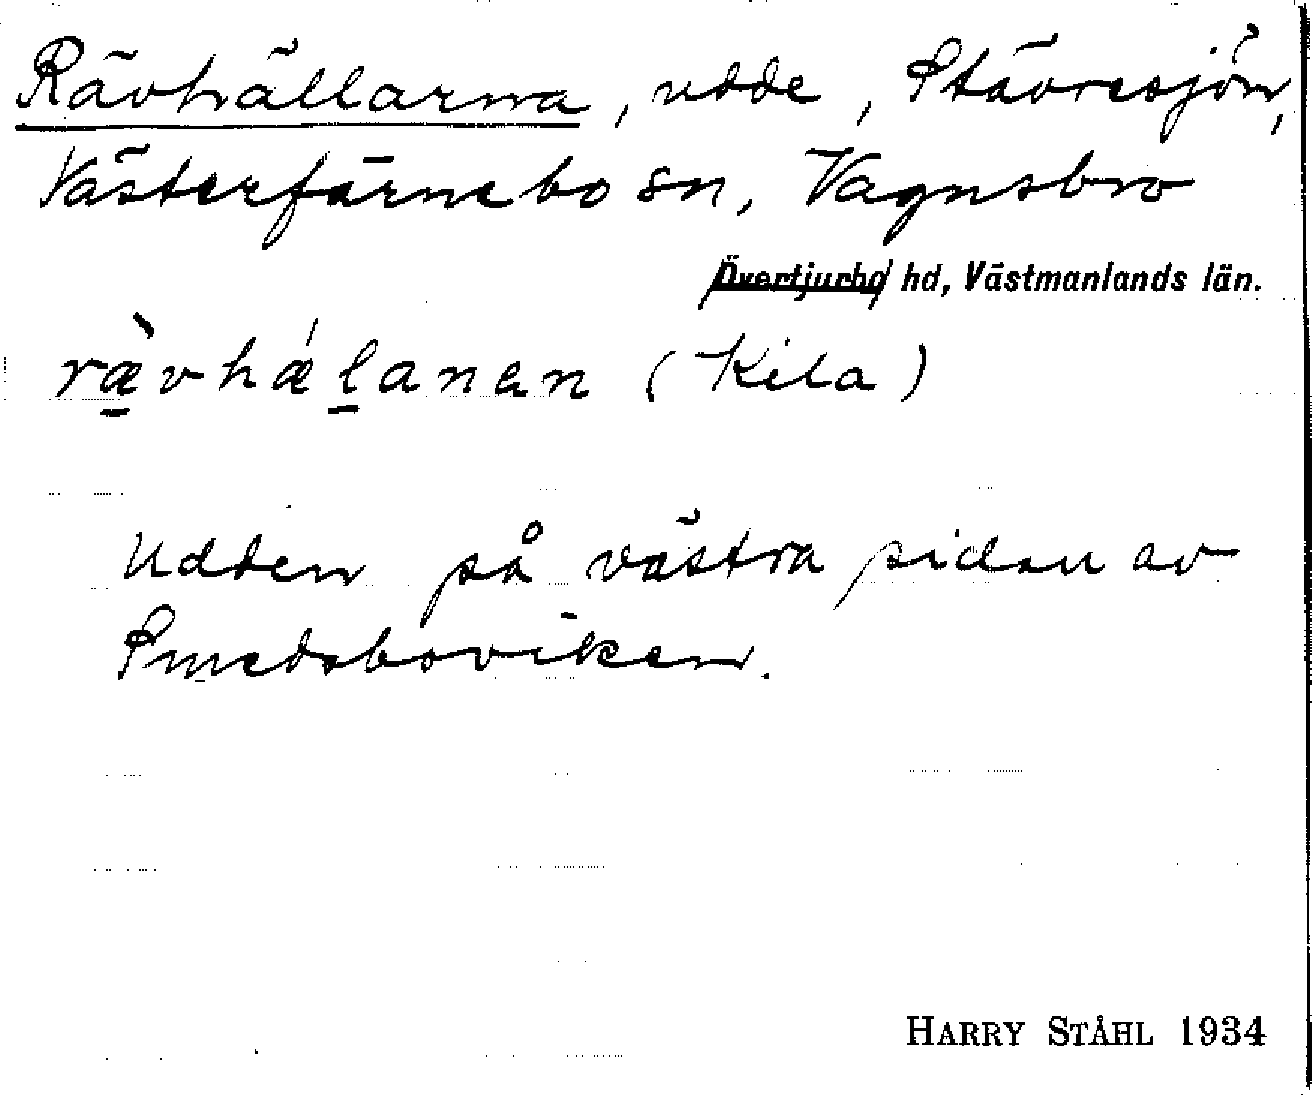 Rävhällarna, udde, Stävresjön,
Västerfärnebo sn, Vagnsbro
Övertjurbo hd, Västmanlands län.
ræ̀vhǽlanan (Kila)
Udden på västra sidan av
Smedsboviken.
HARRY STÅHL 1934